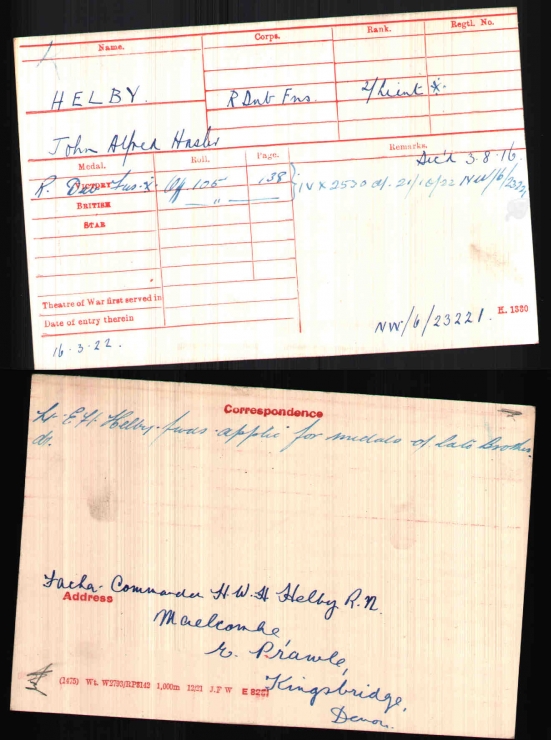 Name.
Corps.
Rank.
Regtl. No.
HELBY.
R Dub Fus.
2/Lieut *.
John Alfred Hasler
Medal.
Roll.
Page.
Remarks.
Dec'd 3.8.16.
VICTORY
R. Dub Fus. *
Off 125
138
IV X 2530 d/- 21/10/22 NW/6/23221
BRITISH
"
STAR
Theatre of War first served in
Date of entry therein
K. 1380
NW/6/23221.
16.3.22.
Correspondence
Lt. E. H. Helby. fwds. applic for medals of late Brother
Father- Commander H. W. H Helby R.N.
Address
Maelcombe
E. Prawle,
Kingsbridge,
Devon.
(1475) Wt. W2793/RP8142 1,000m 12/21 J.F W E 8251